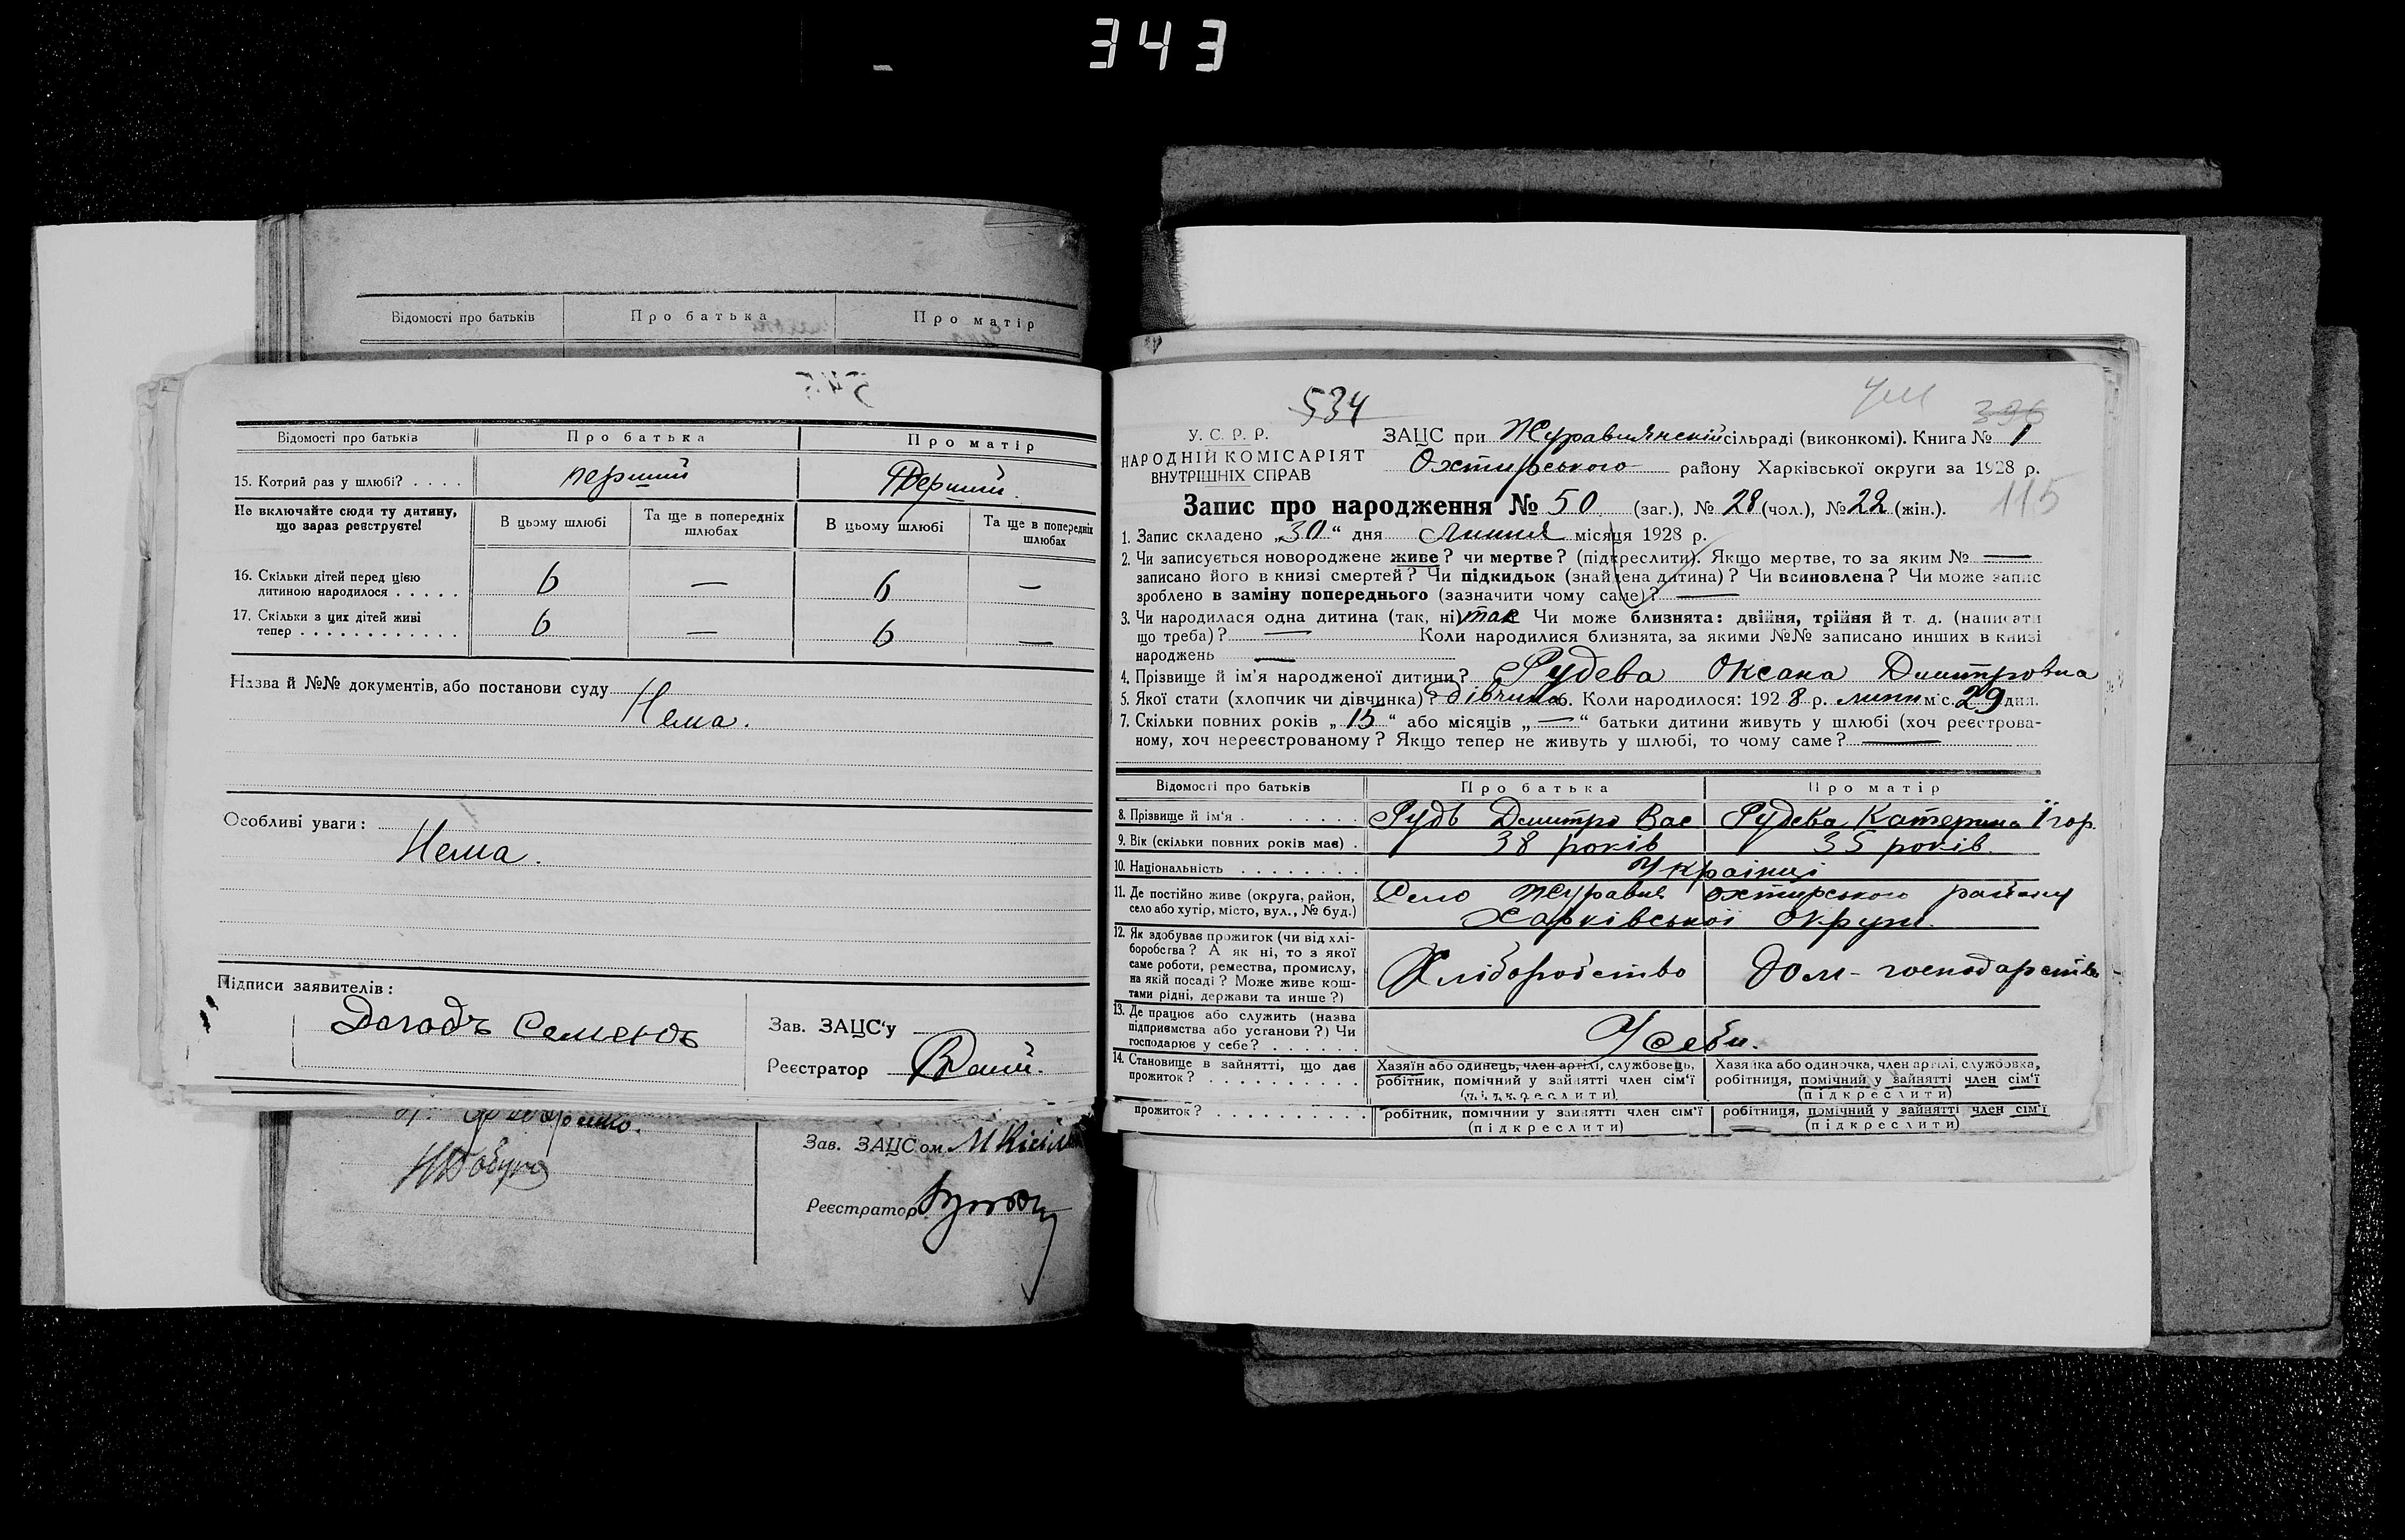 343
Відомості про батьків Про батька Про матір
Відомості про батьків Про батька Про матір
15. Котрий раз у шлюбі? . . . . перший Перший.
Не включайте сюди ту дитину, що зараз реєструєте!
В цьому шлюбі Та ще в попередніх шлюбах В цьому шлюбі Та ще в попередніх шлюбах
16. Скільки дітей перед цією
дитиною народилося . . . . . 6 — 6 —
17. Скільки з цих дітей живі
тепер . . . . . . . . . . . . . 6 — 6 —
Назва й №№ документів, або постанови суду
Нема.
Особливі уваги:
Нема.
Підписи заявителів:
Зав. ЗАЦС'у
Семенъ
Реєстратор
Зав. ЗАЦСом
Реєстратор
534
396
115
У. С. Р. Р.
НАРОДНІЙ КОМІСАРІЯТ
ВНУТРІШНІХ СПРАВ
ЗАЦС при Журавлянскій сільраді (виконкомі). Книга № 1
Охтирського району Харківської округи за 1928 р.
Запис про народження № 50 (заг.), № 28 (чол.), № 22 (жін.).
1. Запис складено „30“ дня Липня місяця 1928 р.
2. Чи записується новороджене живе? чи мертве? (підкреслити). Якщо мертве, то за яким № —
записано його в книзі смертей? Чи підкидьок (знайдена дитина)? Чи всиновлена? Чи може запис
зроблено в заміну попереднього (зазначити чому саме)? —
3. Чи народилася одна дитина (так, ні) так Чи може близнята: двійня, трійня й т. д. (написати
що треба)? — Коли народилися близнята, за якими №№ записано инших в книзі
народжень —
4. Прізвище й ім'я народженої дитини? Рудева Оксана Дмитровна
5. Якої стати (хлопчик чи дівчинка)? дівчина 6. Коли народилося: 1928 р. липн міс. 29 дня.
7. Скільки повних років „15“ або місяців „—“ батьки дитини живуть у шлюбі (хоч реєстрова-
ному, хоч нереєстрованому? Якщо тепер не живуть у шлюбі, то чому саме? —
Відомості про батьків Про батька Про матір
8. Прізвище й ім'я . . . . . . . Рудь Дмитро Вас Рудева Катерина Ігор.
9. Вік (скільки повних років має) . 38 років 35 років.
10. Національність . . . . . . . . Українці
11. Де постійно живе (округа, район, Село Журавне Охтирського району
село або хутір, місто, вул., № буд.) Харківської округи.
12. Як здобуває прожиток (чи від хлі-
боробства? А як ні, то з якої
саме роботи, ремества, промислу,
на якій посаді? Може живе кош-
тами рідні, держави та инше?)
Хліборобство Дом-господарство
13. Де працює або служить (назва
підприємства або установи?) Чи
господарює у себе? . . . . . .
У себи.
14. Становище в зайнятті, що дає
прожиток? . . . . . . . . . . .
Хазяїн або одинець, член артілі, службовець,
робітник, помічний у зайнятті член сім'ї
(підкреслити)
Хазяйка або одиночка, член артілі, службовка,
робітниця, помічний у зайнятті член сім'ї
(підкреслити)
прожиток? . . . . . . . . . . . робітник, помічний у зайнятті член сім'ї робітниця, помічний у зайнятті член сім'ї
(підкреслити) (підкреслити)